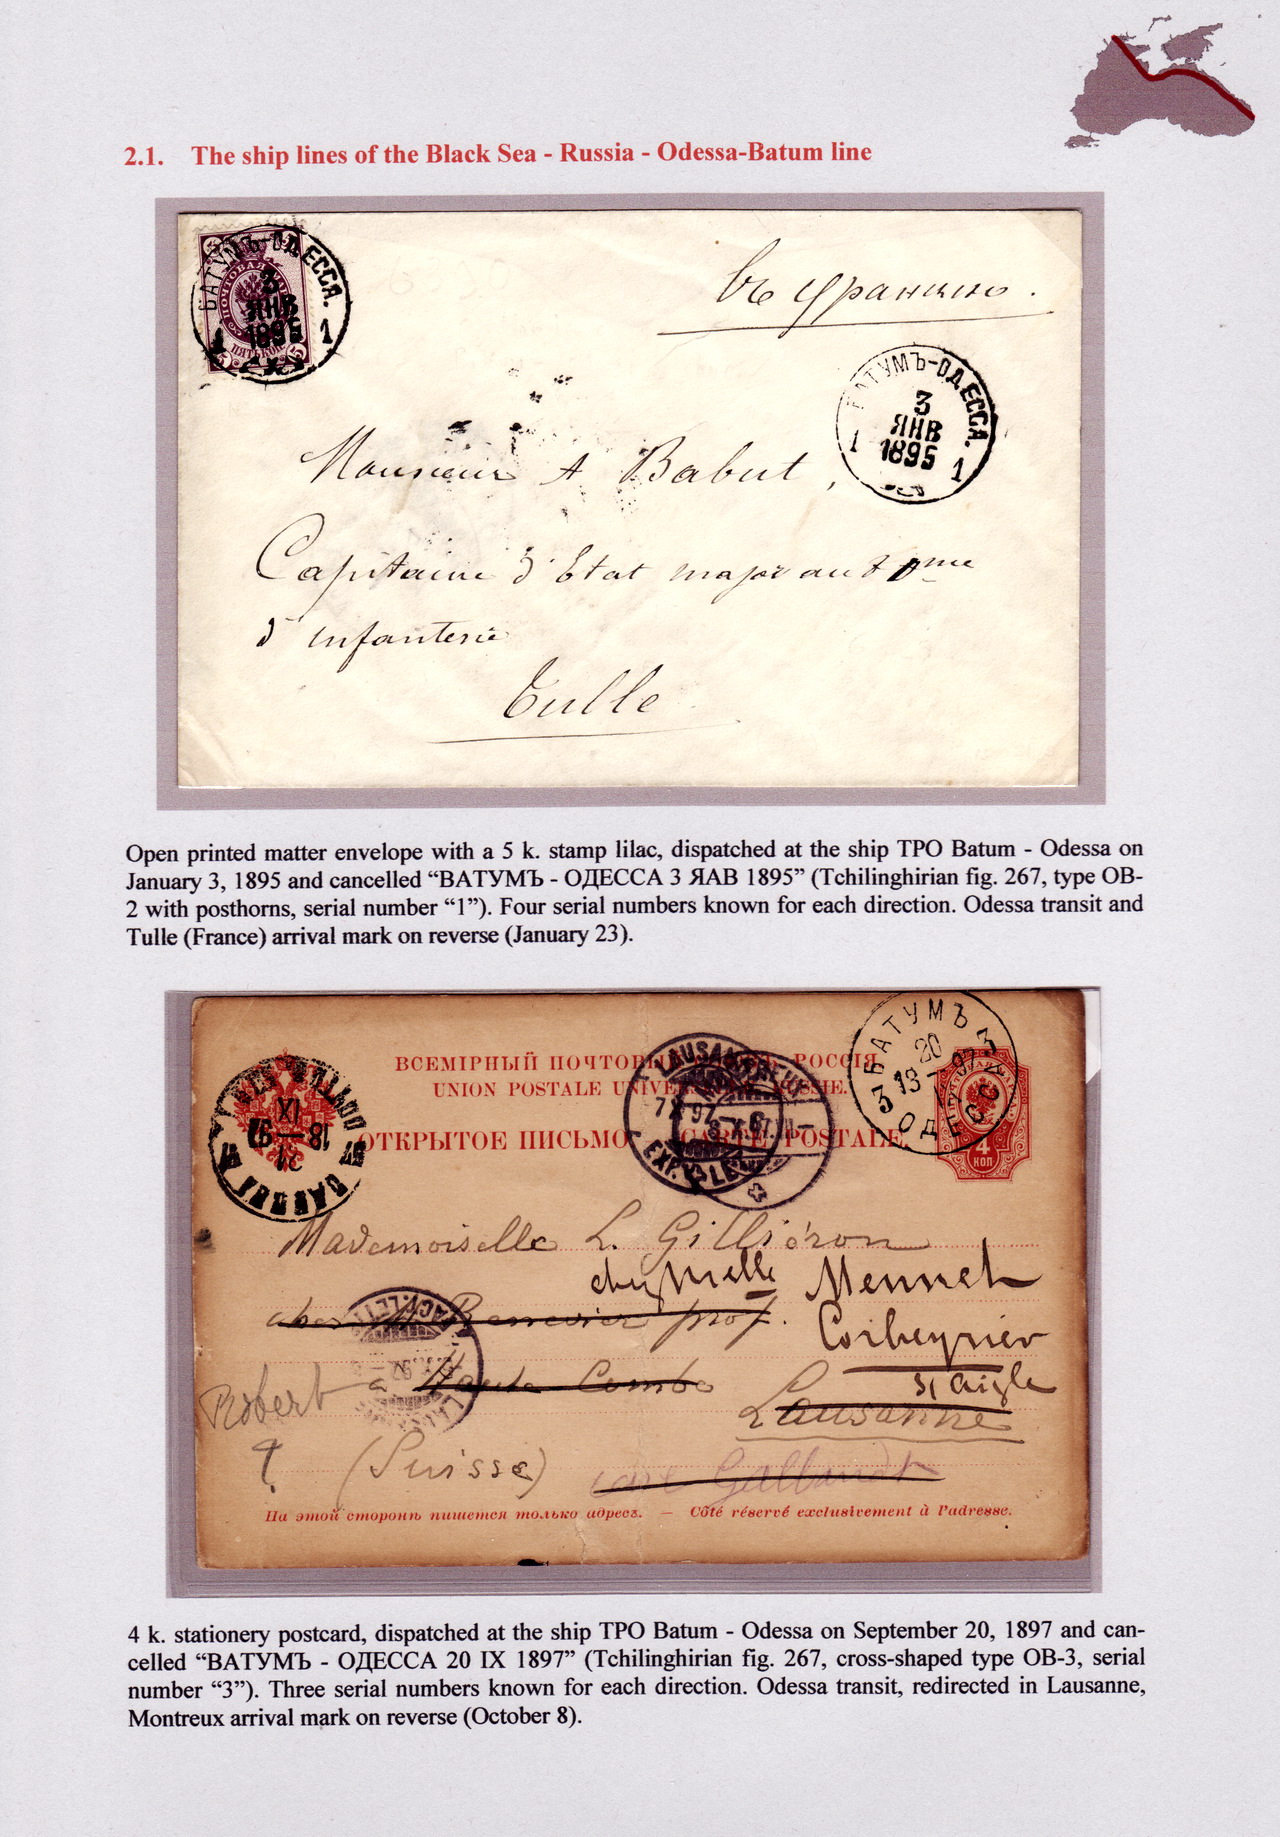 2.1. The ship lines of the Black Sea - Russia - Odessa-Batum line
БАТУМЪ-ОДЕССА.
3
ЯНВ
1895
1 1
ПОЧТОВАЯ
ПЯТЬ КОП.
въ Францiю.
БАТУМЪ-ОДЕССА.
3
ЯНВ
1895
1 1
Monsieur A Babut,
Capitaine d'Etat major au
d'infanterie
Tulle
Open printed matter envelope with a 5 k. stamp lilac, dispatched at the ship TPO Batum - Odessa on
January 3, 1895 and cancelled “ВАТУМЪ - ОДЕССА 3 ЯАВ 1895” (Tchilinghirian fig. 267, type OB-
2 with posthorns, serial number “1”). Four serial numbers known for each direction. Odessa transit and
Tulle (France) arrival mark on reverse (January 23).
БАТУМЪ
20
3 13 - 97 3
ОДЕСС
ВСЕМІРНЫЙ ПОЧТОВЫЙ РОССІЯ
UNION POSTALE UNIVERSELLE RUSSIE.
ОТКРЫТОЕ ПИСЬМО CARTE POSTALE.
4
КОП
LAUSANNE
7 X 97
EXP. LET
MONTREUX
8 X 97
ОДЕССА
IX
18 — 97
21
Mademoiselle L. Gilliéron
chez Melle Mennet
chez M Renevier prof.
Corbeyrier
s/ Aigle
a Haute Combe
Lausanne
Robert
?
(Suisse)
Gallandt
На этой сторонѣ пишется только адресъ. — Côté réservé exclusivement à l'adresse.
4 k. stationery postcard, dispatched at the ship TPO Batum - Odessa on September 20, 1897 and can-
celled “ВАТУМЪ - ОДЕССА 20 IX 1897” (Tchilinghirian fig. 267, cross-shaped type OB-3, serial
number “3”). Three serial numbers known for each direction. Odessa transit, redirected in Lausanne,
Montreux arrival mark on reverse (October 8).